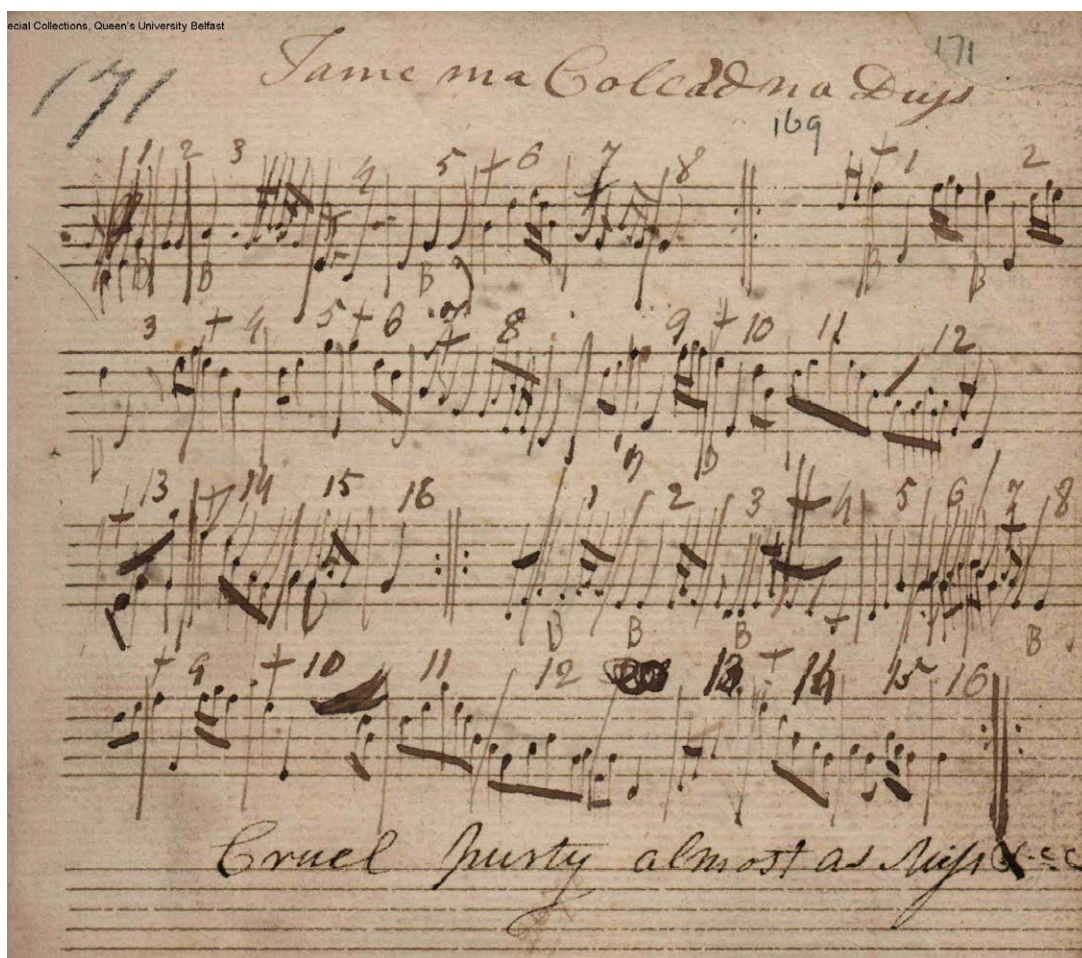 ecial Collections, Queen's University Belfast
171
171
Tame ma Colcad na Duys
169
1 2 3 4 5 + 6 7 8 + 1 2
B B B B B
3 + 4 5 + 6 or 8 9 + 10 11 12
+ 13 + 14 15 16 1 2 3 + 4 5 6 7 8
B B B + B
+ 9 + 10 11 12 13 + 14 15 16
Cruel purty almost as Miss